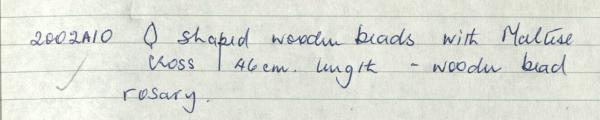 2002A10 () shaped wooden beads with Maltese
cross | 46cm. length - wooden bead
rosary.